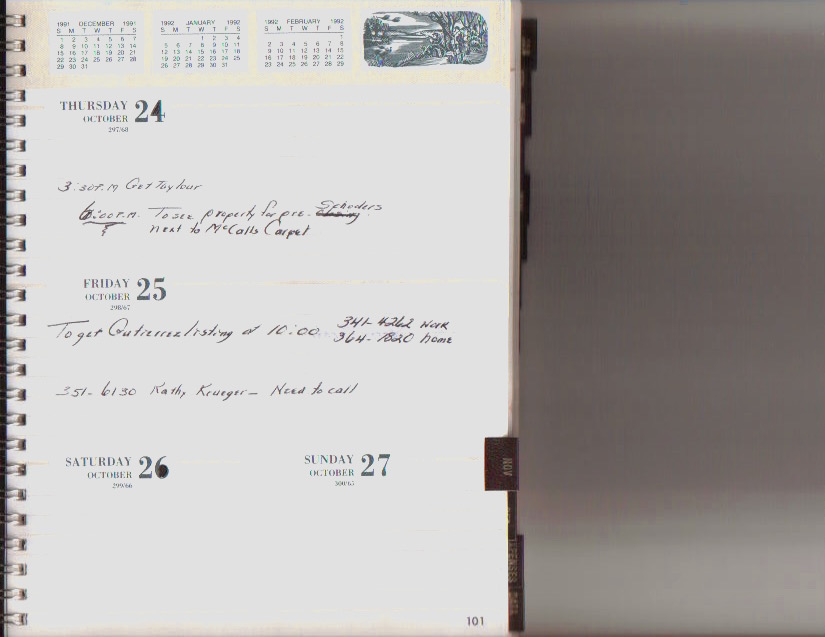 1991 DECEMBER 1991
S M T W T F S
1 2 3 4 5 6 7
8 9 10 11 12 13 14
15 16 17 18 19 20 21
22 23 24 25 26 27 28
29 30 31
1992 JANUARY 1992
S M T W T F S
1 2 3 4
5 6 7 8 9 10 11
12 13 14 15 16 17 18
19 20 21 22 23 24 25
26 27 28 29 30 31
1992 FEBRUARY 1992
S M T W T F S
1
2 3 4 5 6 7 8
9 10 11 12 13 14 15
16 17 18 19 20 21 22
23 24 25 26 27 28 29
THURSDAY 24
OCTOBER
297/68
3:30P.M Get Taylour
6:00P.M. To see property for pre- Schoders
next to McCalls Carpet
FRIDAY 25
OCTOBER
298/67
To get Gutierrez listing at 10:00 341-4262 work
364-7820 home
351-6130 Kathy Krueger - Need to call
SATURDAY 26
OCTOBER
299/66
SUNDAY 27
OCTOBER
300/65
NOV
101